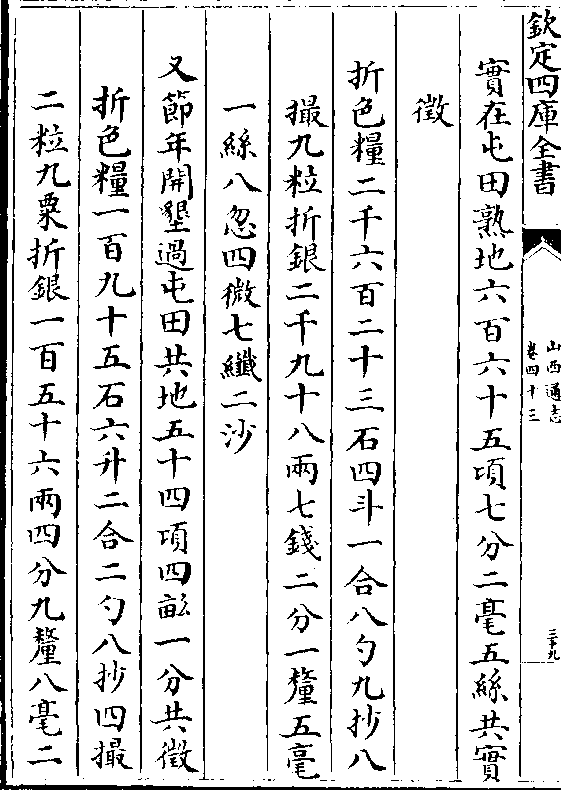 欽定四庫全書
山西通志
卷四十三
三十九
實在屯田熟地六百六十五頃七分二毫五絲共實
徵
折色糧二千六百二十三石四斗一合八勺九抄八
撮九粒折銀二千九十八兩七錢二分一釐五毫
一絲八忽四微七纖二沙
又節年開墾過屯田共地五十四頃四畝一分共徵
折色糧一百九十五石六升二合二勺八抄四撮
二粒九粟折銀一百五十六兩四分九釐八毫二